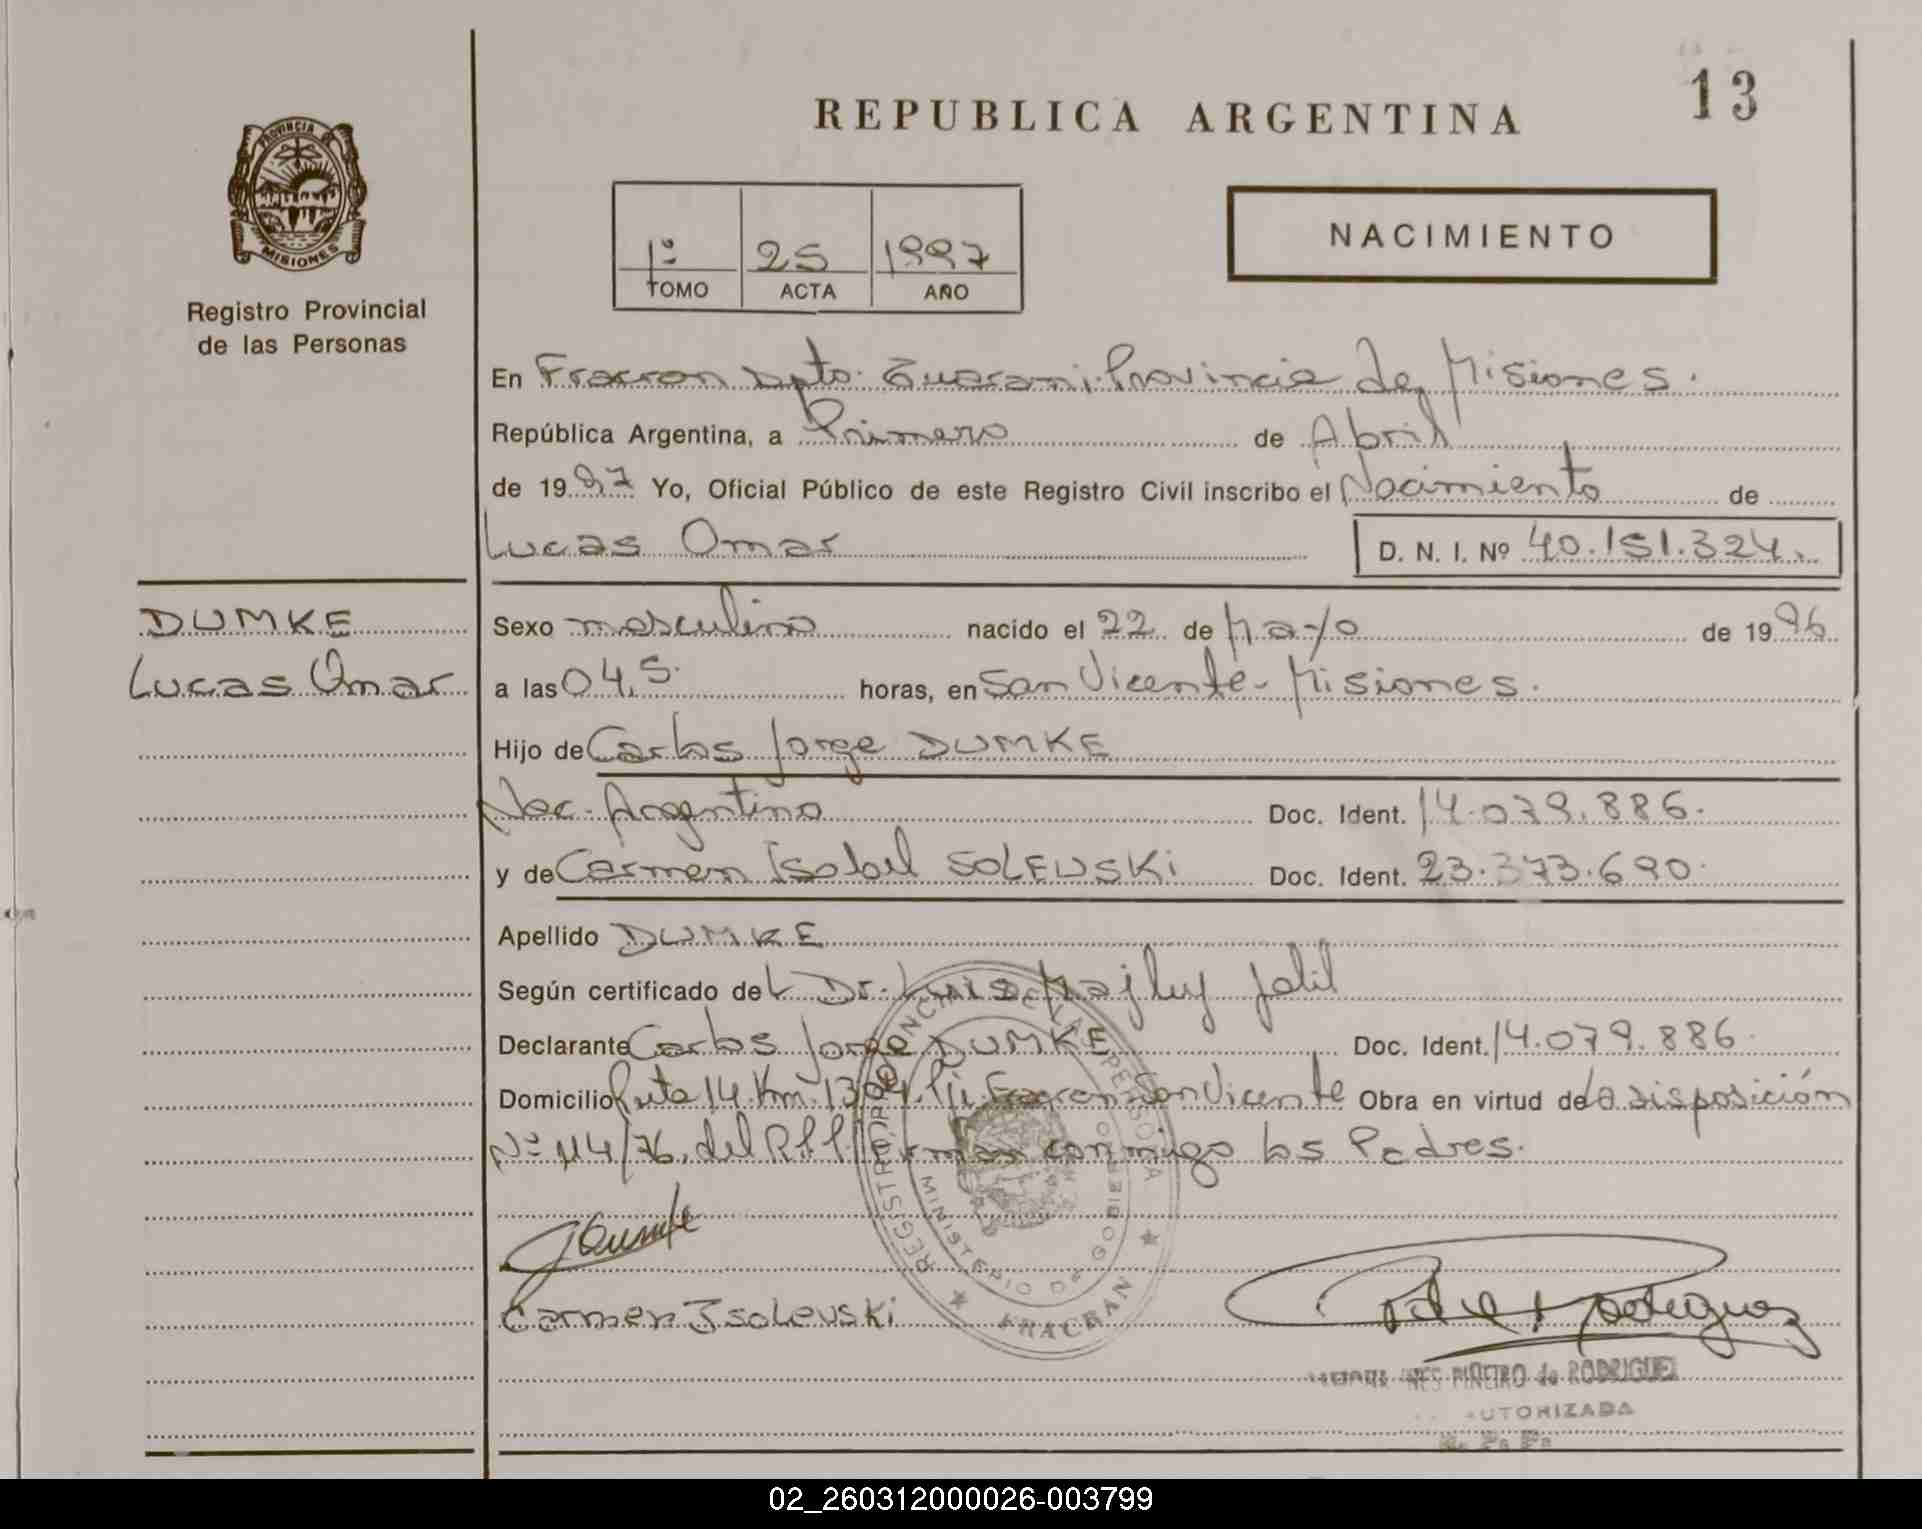 13
REPUBLICA ARGENTINA
PROVINCIA
MISIONES
Registro Provincial
de las Personas
1º 25 1997
TOMO ACTA AÑO
NACIMIENTO
En Fracran Dpto. Guarani. Provincia de Misiones.
República Argentina, a Primero de Abril
de 1997 Yo, Oficial Público de este Registro Civil inscribo el Nacimiento de
Lucas Omar D. N. I. Nº 40.151.324.
DUMKE
Lucas Omar
Sexo masculino nacido el 22 de Mayo de 1996
a las 04,5. horas, en San Vicente - Misiones.
Hijo de Carlos Jorge DUMKE
Nac. Argentina Doc. Ident. 14.079.886.
y de Carmen Isabel SOLEUSKi Doc. Ident. 23.373.690.
Apellido DUMKE
Según certificado del Dr. Luis Majluf Jalil
Declarante Carlos Jorge DUMKE Doc. Ident. 14.079.886.
Domicilio Ruta 14 Km. 1304. Fracran San Vicente Obra en virtud de la disposición
Nº 114/76. del R.P.P. Firman conmigo los Padres.
REGISTRO PROVINCIAL DE LAS PERSONAS
MINISTERIO DE GOBIERNO
FRACRAN
Dumke
Carmen Isoleuski
Rodriguez
INES PIÑEIRO de RODRIGUEZ
AUTORIZADA
02_260312000026-003799